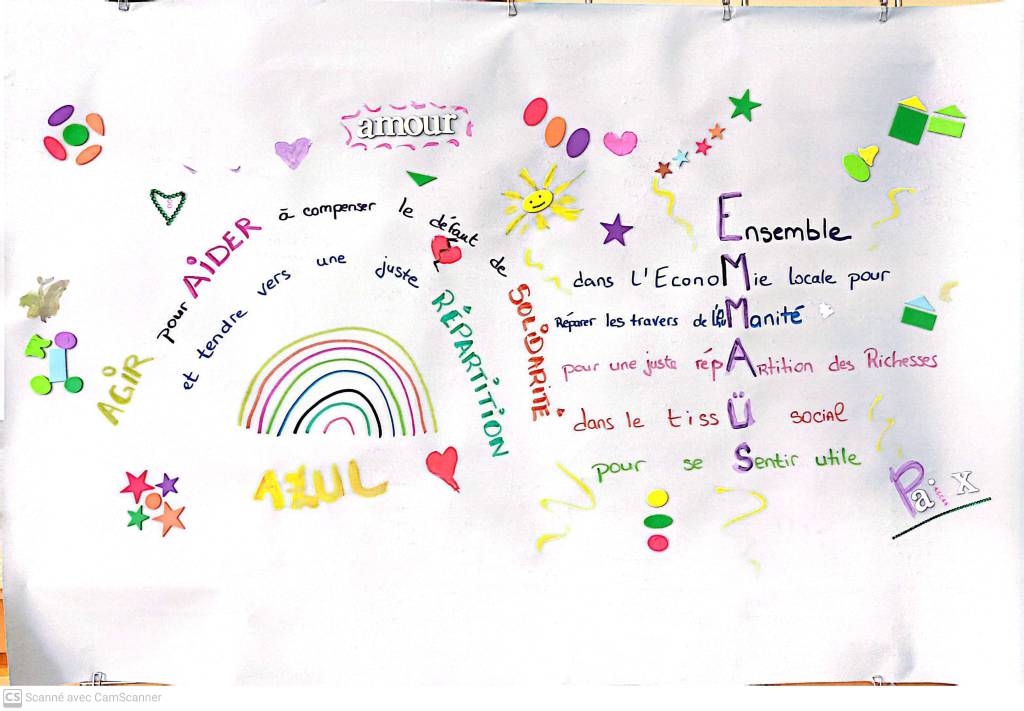 amour
AGIR pour AIDER à compenser le défaut de SOLIDARITÉ
et tendre vers une juste RÉPARTITION
AZUL
Ensemble
dans l'EconoMie locale pour
Réparer les travers de Manité
pour une juste répArtition des Richesses
dans le tissÜ social
pour se Sentir utile
Paix
CS Scanné avec CamScanner